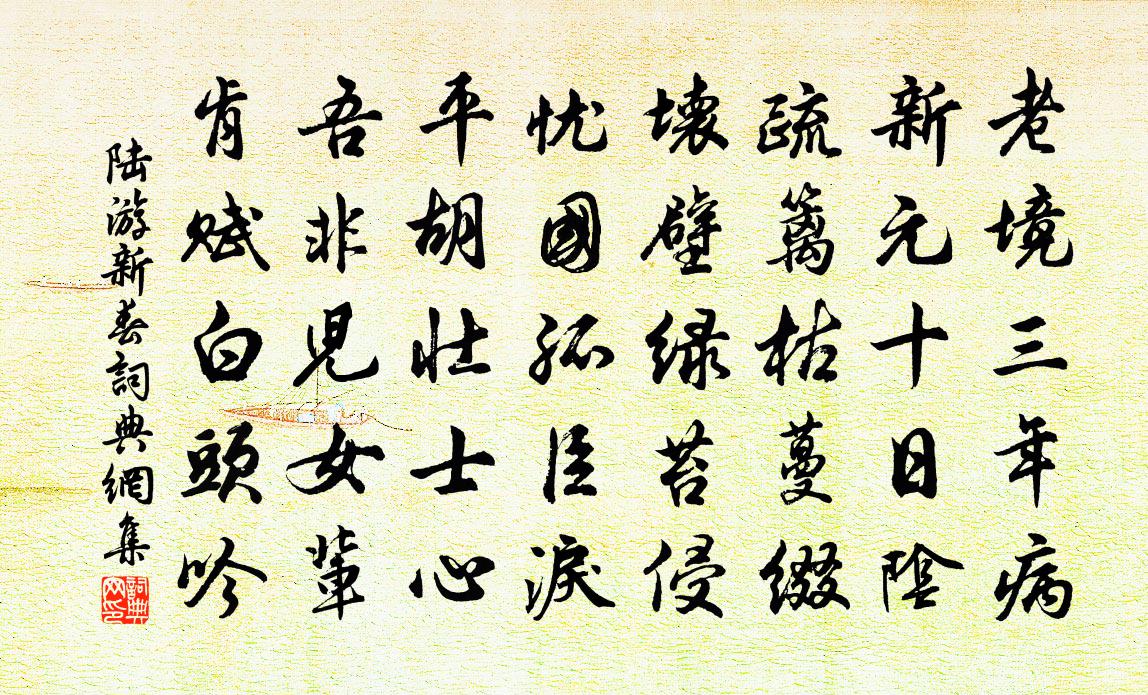 老境三年病
新元十日陰
疏籬枯蔓綴
壞壁綠苔侵
忧國孤臣淚
平胡壯士心
吾非兒女輩
肯賦白頭吟
陆游新春詞典網集
詞典网印